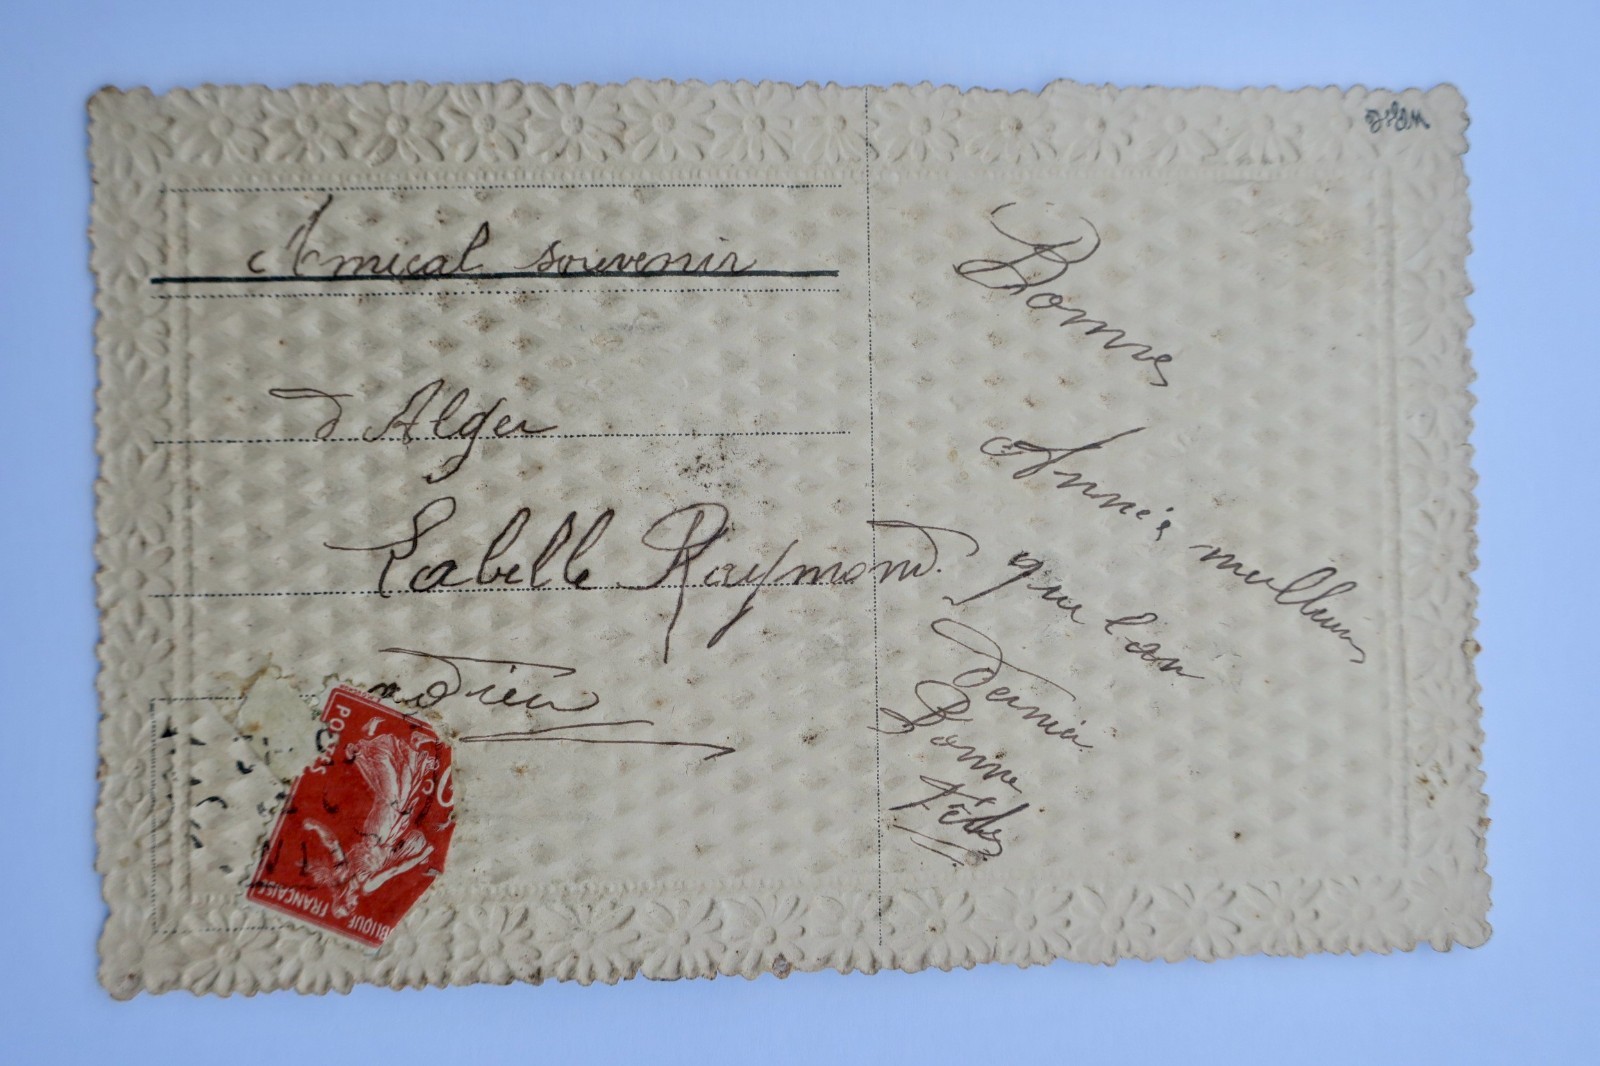 Amical souvenir
d'Alger
Labelle Raymond.
adieu
Bonne
Année meilleure
que l'an
dernier
Bonne
Fêtes
POSTES
BLIQUE FRANÇAISE